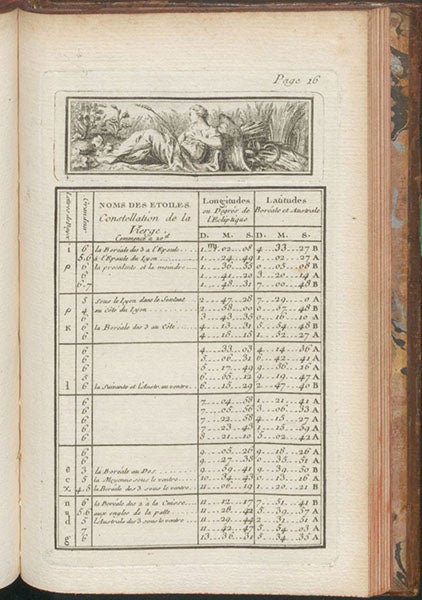 Page 16
Lettres de Bayer
Grandeur
NOMS DES ETOILES.
Constellation de la
Vierge.
Commence a 20d.
Longitudes
ou Degrés de
l'Ecliptique
Latitudes
Boréale et Australe
D. M. S. D. M. S.
i 6 la Boréale des 2 a l'Epaule 1 ♍ 02 08 4 33 27 B
5.6 a l'Epaule du Lyon 1 24 49 1 02 27 A
p 6 la précédente et la moindre 1 36 55 0 05 08 B
6 1 41 20 3 20 14 A
6.7 1 48 31 7 00 48 B
5 sous le Lyon dans le Sextant 2 47 28 7 29 0 A
p 4 au Côté du Lyon 2 58 00 0 57 48 B
6 3 43 35 0 16 10 A
K 6 la Boréale des 3 au Côté 4 13 31 5 54 48 B
6 4 15 15 1 52 27 A
6 4 33 03 4 14 36 A
6 5 06 31 6 42 41 A
6 5 17 49 9 36 16 A
6 6 05 12 9 19 47 A
l 6 la Suivante et l'Austr. au ventre 6 15 29 2 47 40 B
6 7 04 58 1 21 41 A
6 7 05 56 3 06 33 A
6 7 22 58 4 15 27 A
6 7 23 43 1 15 59 A
6 8 21 10 5 02 42 A
6 9 05 26 9 18 26 A
6 9 27 38 0 35 51 A
3 la Boréale au Dos 9 59 41 9 39 50 B
c 5 la Moyenne sous le ventre 10 34 43 0 13 16 A
χ 4.5 la Boréale des 3 sous le ventre 11 06 19 1 20 21 B
n 6 la Boréale des 2 a la Cuisse 11 12 17 7 51 41 B
u 5.6 aux ongles de la patte 11 28 42 5 39 57 A
d 5 l'Australe des 3 sous le ventre 11 29 44 2 31 51 A
7 11 42 54 0 03 A
g 6 13 36 31 5 34 35 A